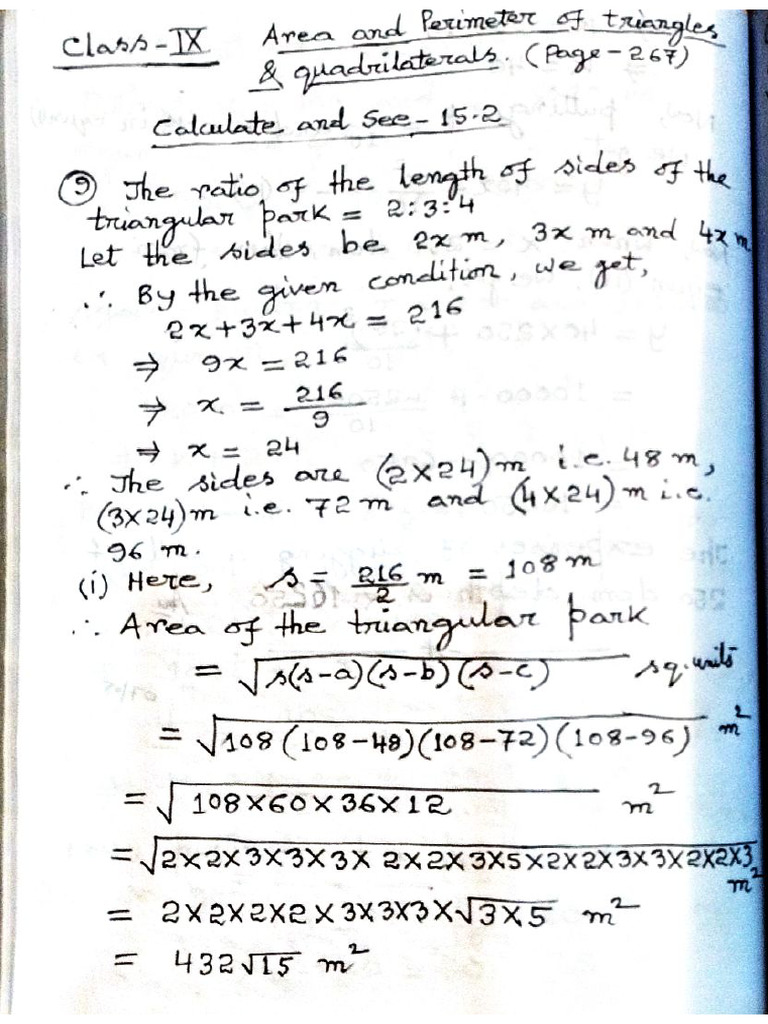 Class-IX Area and Perimeter of triangles
& quadrilaterals. (Page-267)
Calculate and See-15.2
⑨ The ratio of the length of sides of the
triangular park = 2:3:4
Let the sides be 2x m, 3x m and 4x m
∴ By the given condition, we get,
2x+3x+4x = 216
⇒ 9x = 216
⇒ x = 216/9
⇒ x = 24
∴ The sides are (2×24)m i.e. 48 m,
(3×24)m i.e. 72 m and (4×24)m i.e.
96 m.
(i) Here, s = 216/2 m = 108 m
∴ Area of the triangular park
= √s(s-a)(s-b)(s-c) sq. units
= √108(108-48)(108-72)(108-96) m²
= √108×60×36×12 m²
= √2×2×3×3×3×2×2×3×5×2×2×3×3×2×2×3
m²
= 2×2×2×2×3×3×3×√3×5 m²
= 432√15 m²